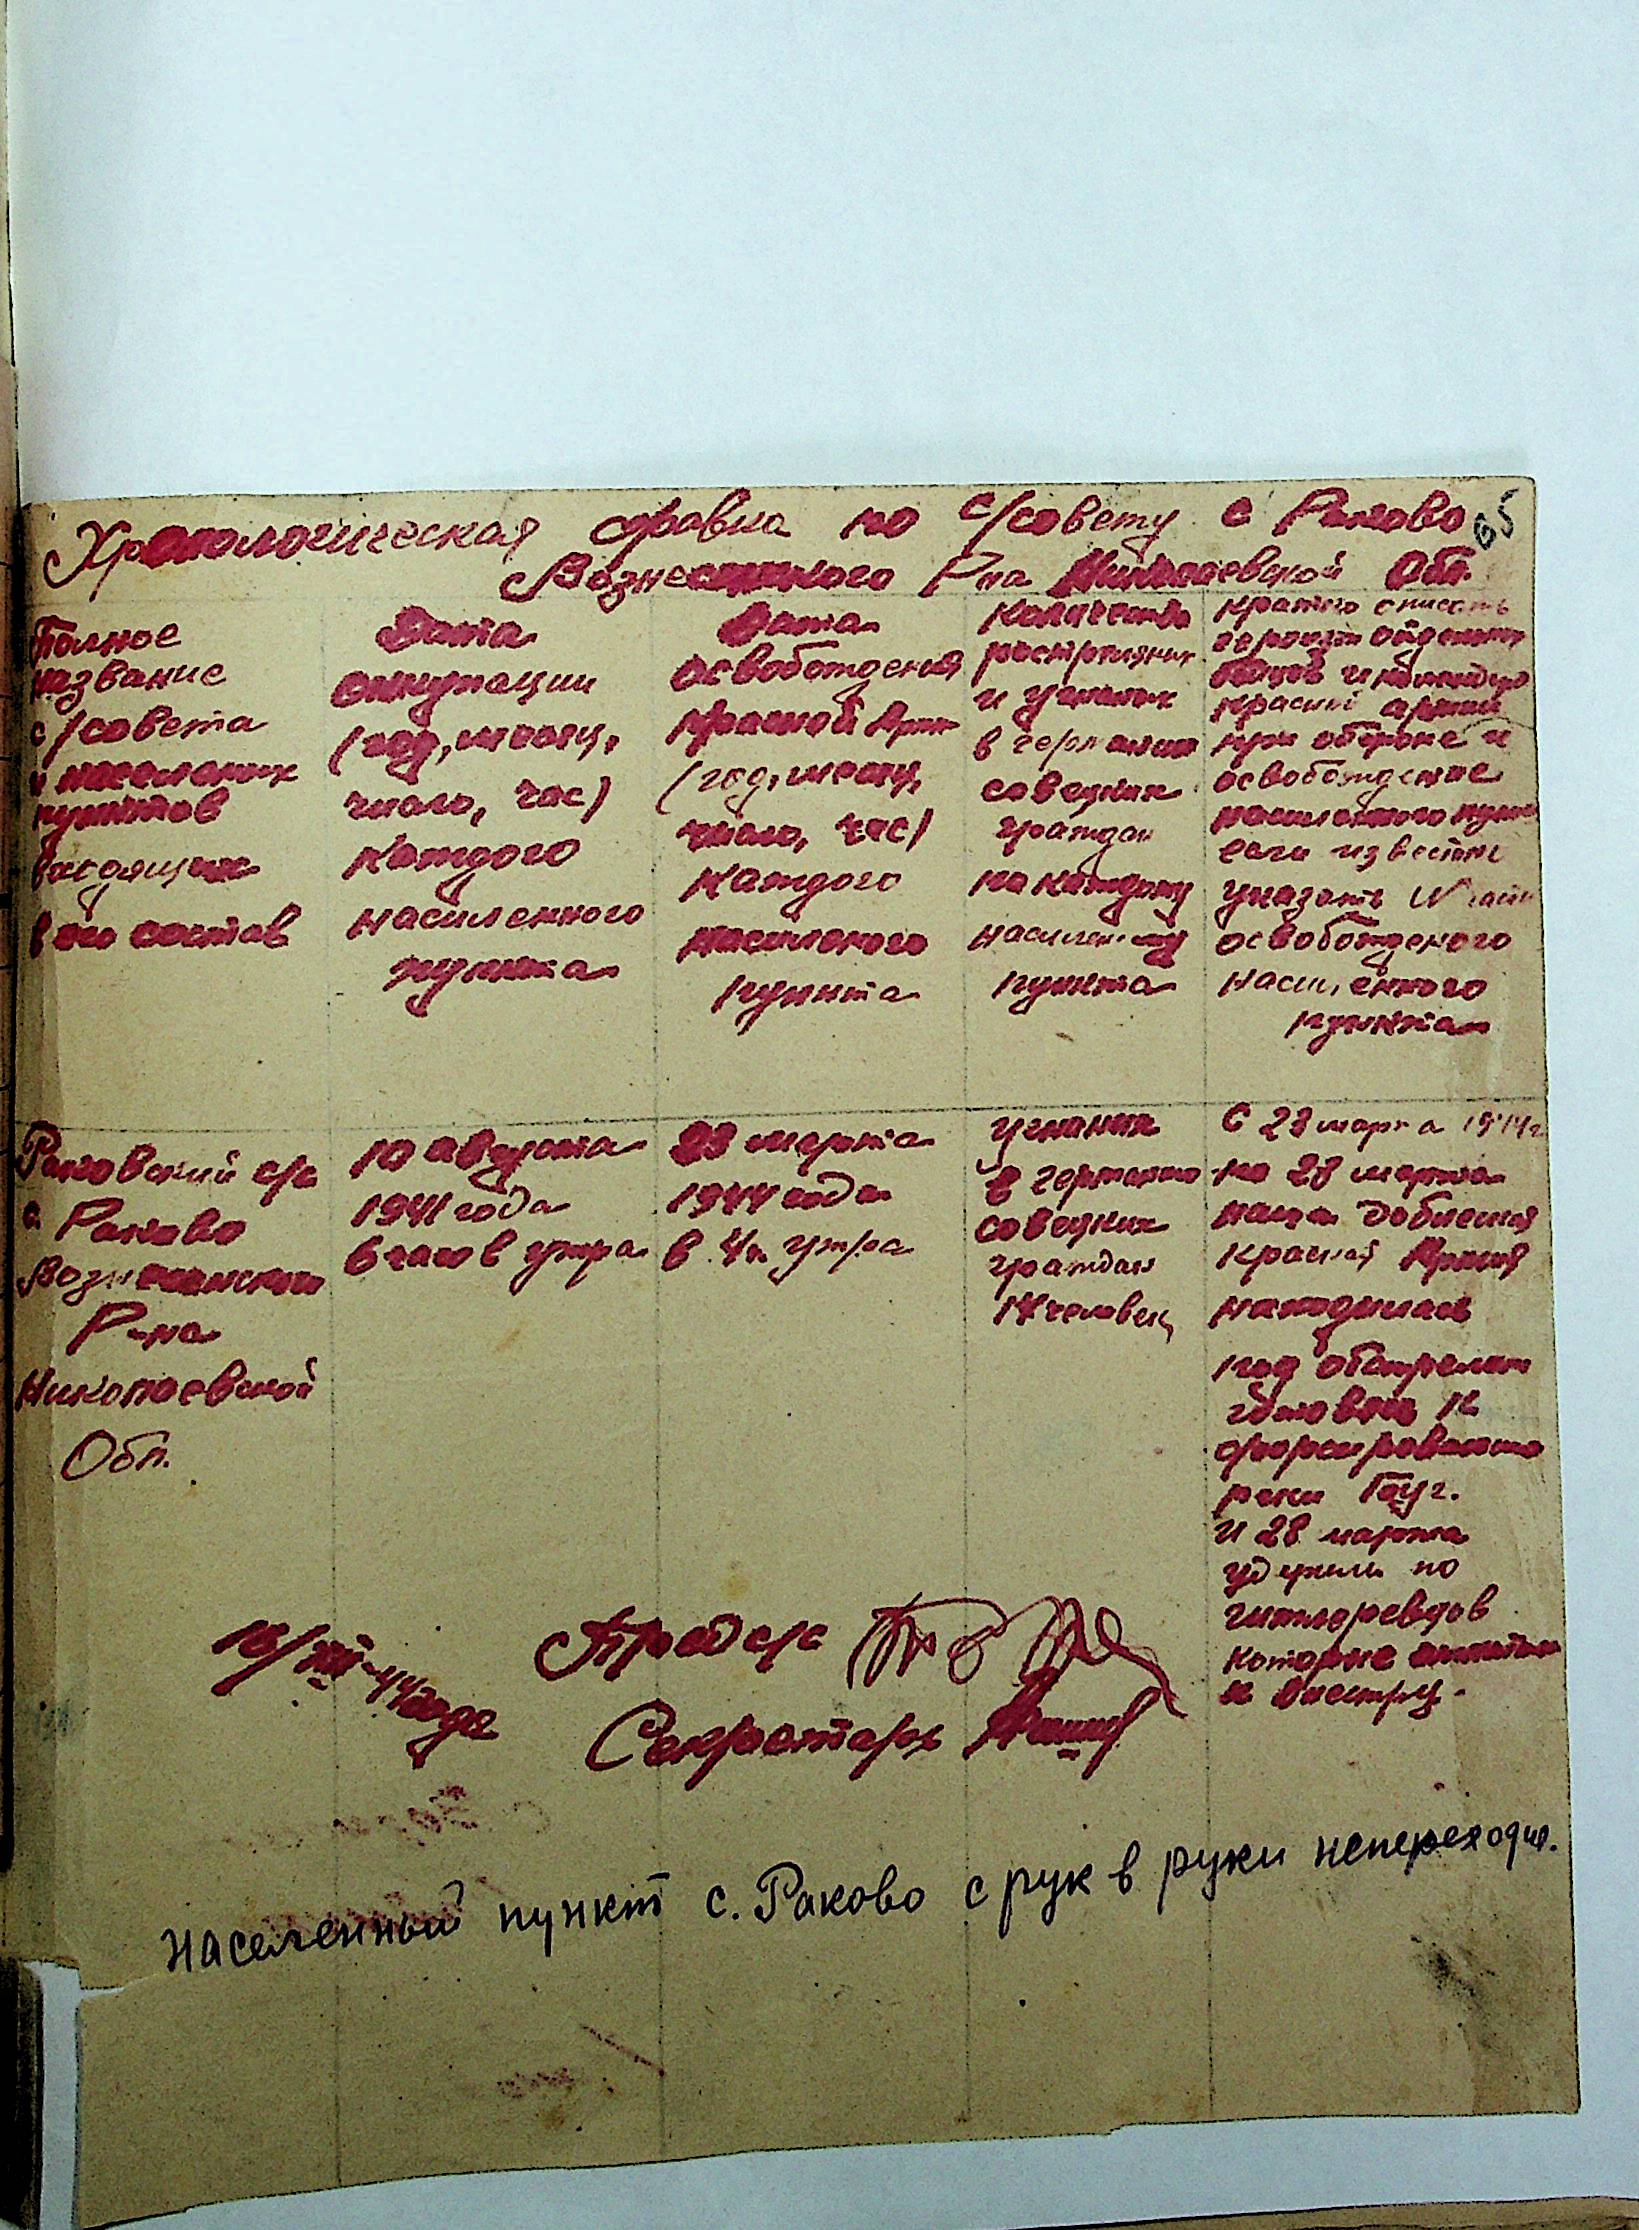 Хронологическая справка по с/совету с Раково
65
Вознесенского Р-на Николаевской Обл.
Полное
название
с/совета
и населеных
пунктов
входящих
в его состав
Дата
оккупации
(год, месяц,
число, час)
каждого
населенного
пункта
Дата
освобождения
Красной Арм
(год, месяц,
число, час)
каждого
населеного
пункта
Количество
растреляних
и угнаных
в германию
совецких
граждан
по каждому
населеному
пункта
кратко описать
героизм отдельных
бойцов и командир
красной армии
при обороне и
освобождение
населенного пункт
если известно
указать № части
освобожденого
населенного
пункта
Раковский с/с
с. Раково
Вознесенского
Р-на
Николаевской
Обл.
10 августа
1941 года
6 часов утра
28 марта
1944 года
в 4ч утра
угнаних
в германию
совецких
граждан
14 человек
С 23 марта 1944г
на 28 марта
наша доблесная
Красная Армия
находилась
под обстрелом
готовясь к
форсированию
реки Буг.
и 28 марта
ударили по
гитлоревцов
которые
к Днестру.
16/VIII-44 года
Пред с/с
Секретарь
Населенный пункт с. Раково с рук в руки непереходил.